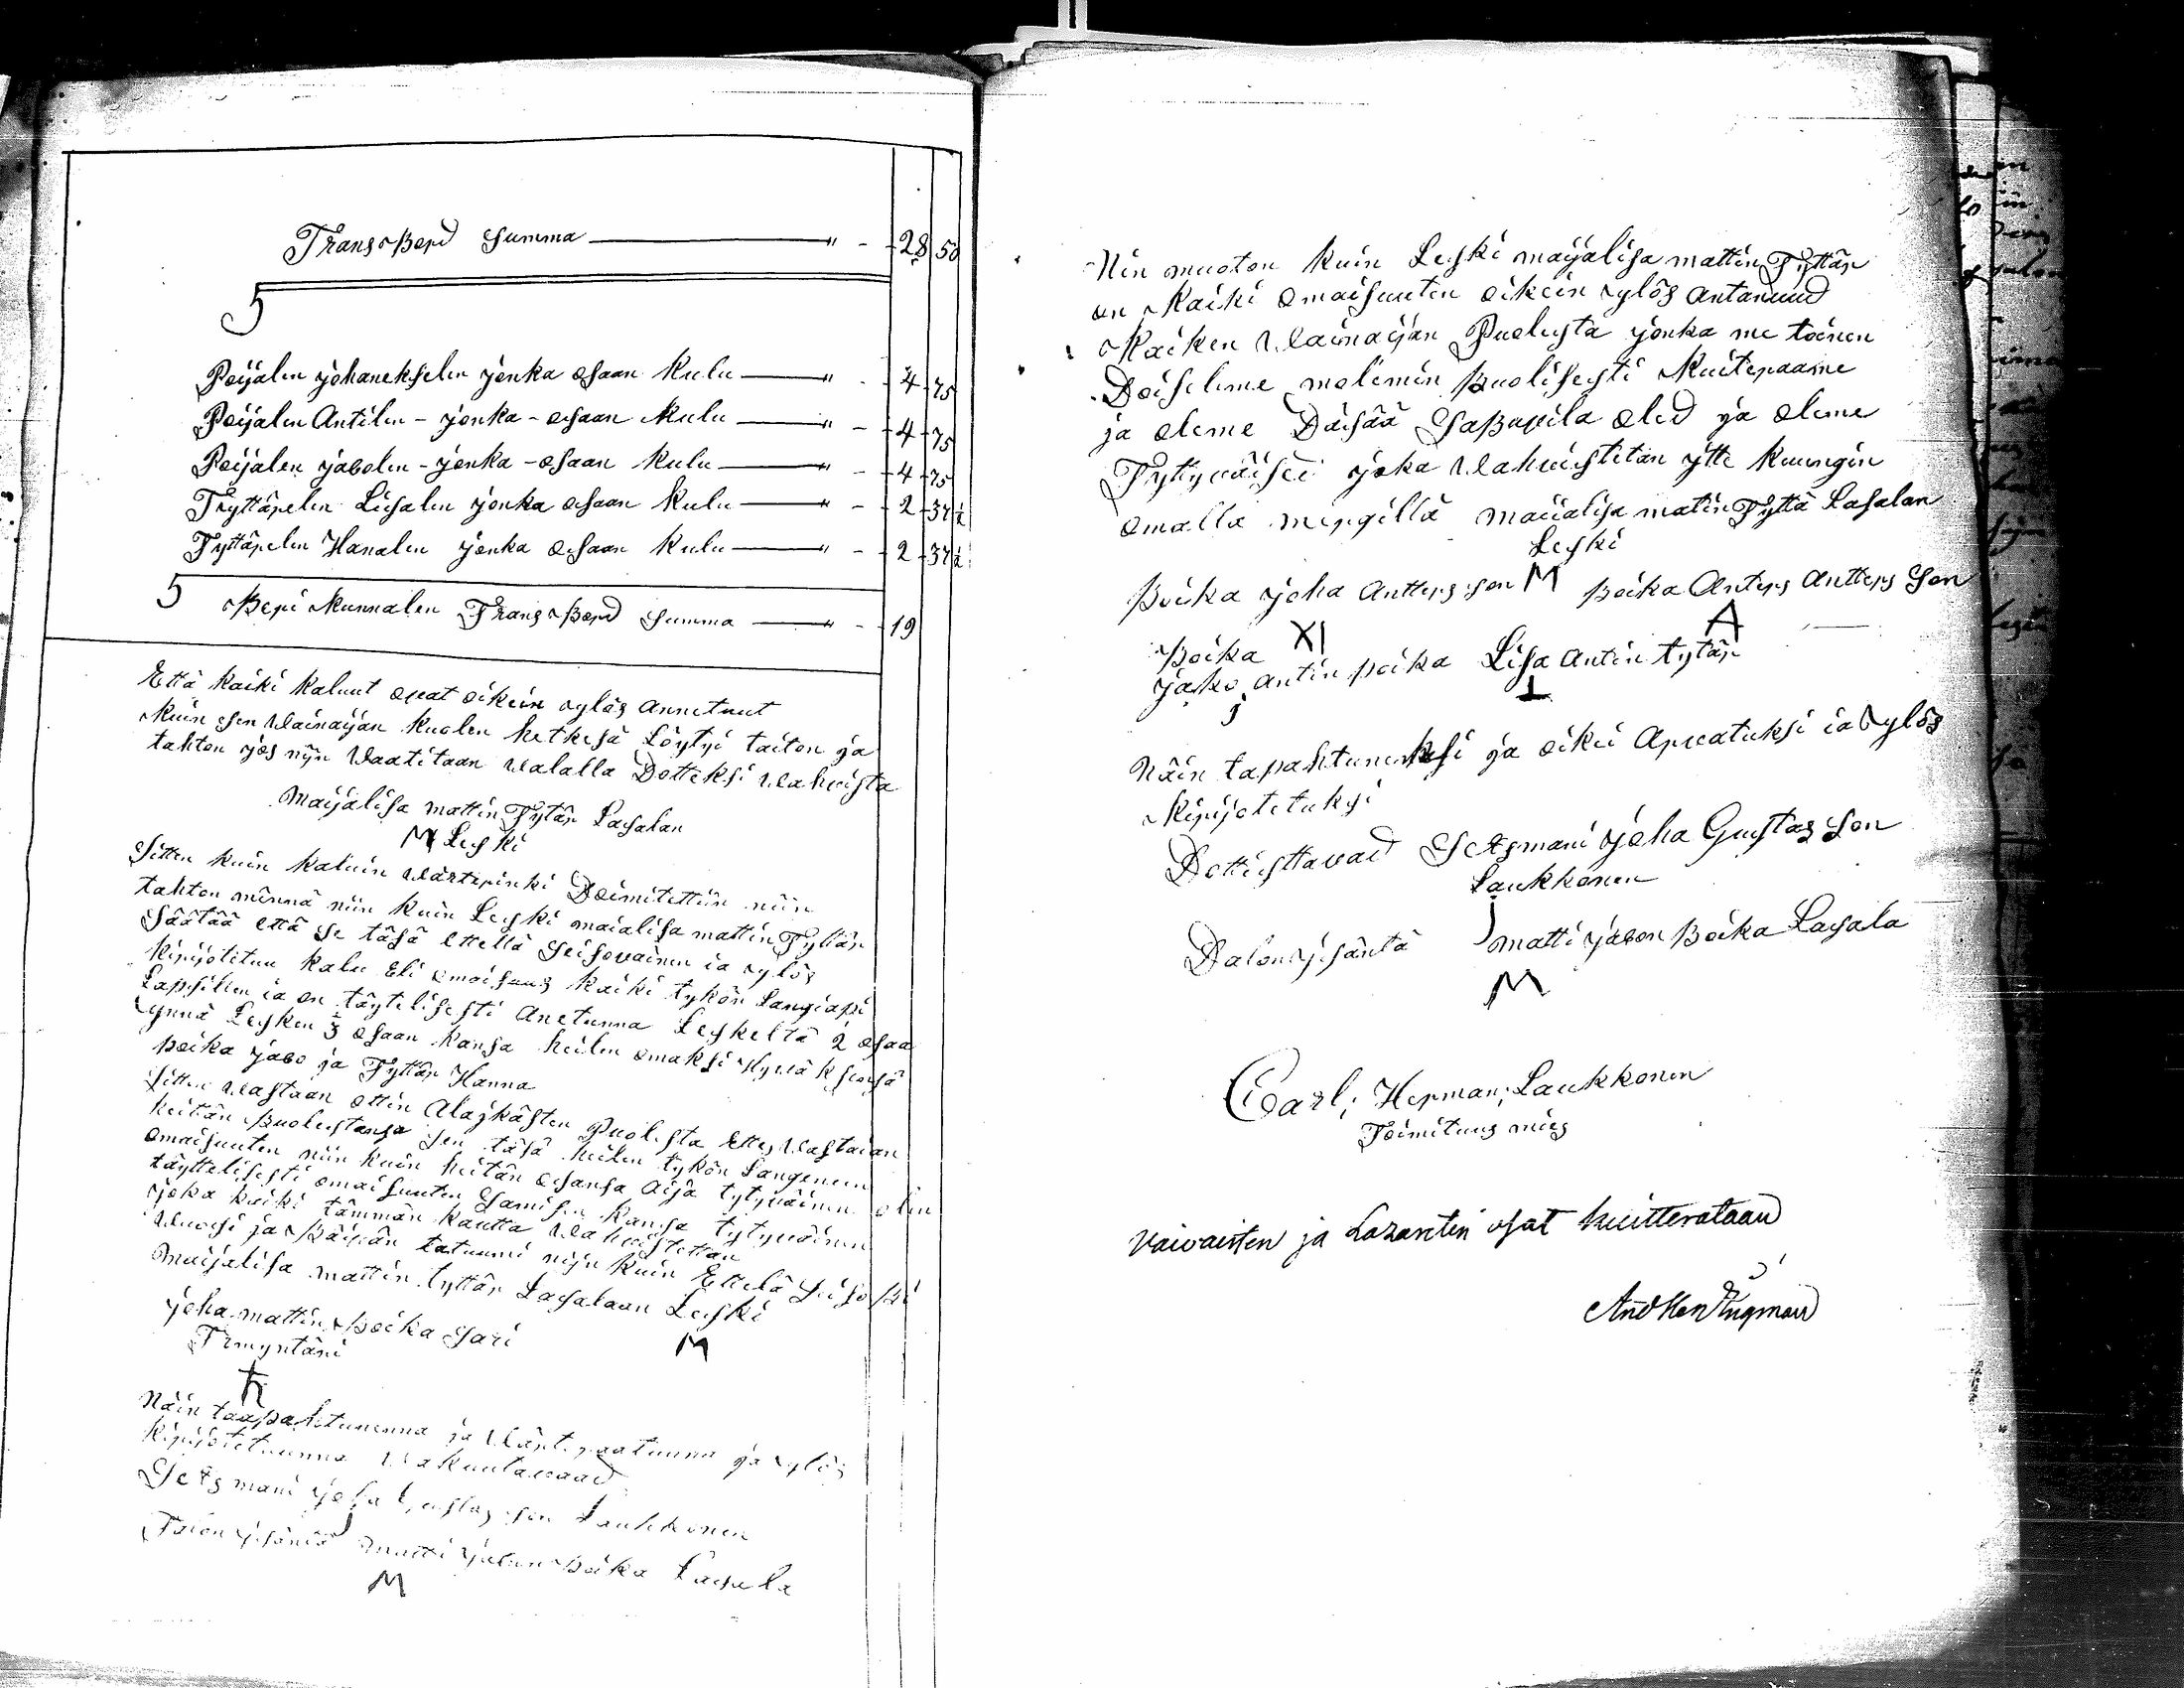 TransPord Summa — " - 28 50
Poijalen johanekselen jonka osaan kulu — " - 4 75
Poijalen Antilen - jonka - osaan kulu — " - 4 75
Poijalen jacolen - jonka - osaan kulu — " - 4 75
Tyttärelen Lisalen jonka osaan kulu — " - 2 37 1/2
Tyttärelen Hanalen jonka osaan kulu — " - 2 37 1/2
Peri kunnalen TransPord Summa — " - 19
Että kaiki kaluut ovat oikein ylös annetuut
kuin sen Wainaijan kuolen hetkesä Löytyi taiton ja
tahton jos nijn Waatitaan Walalla Dotteksi Wahwista
Maijalisa mattin Tytär Lasalan
M Leski
Sitten kuin kaluin Wärterinki Doimitettiin niin
tahton minnä niin kuin Leski maialisa mattin Tyttär
Säätää että se täsä ettellä Seisovainen ia ylös
kirijoitetun kalu Eli omaisuus kaiki tykön Langiapi
Lapsillen ia on täytelisesti Anetunna Leskeltä 2 osaa
ynnä Lesken 3 osaan kansa heilen omaksi Hywäksensä
poika jaco ja Tyttär Hanna
Sitten Wastaan ottin Alaskästen Puolesta Ettes Wastaian
heitän Puolestansa Sen täsä heilen tykön Langenen
omaisuuten niin kuin heitän osansa Aija tytywäinen olin
täyttelisesti omaisuuten Samisen kansa tytywäinen
joka kaiki tämmän kautta Wahwistettan
Wuosi ja Päiwän tatuumi nijn kuin Ettelä Seiso
maijalisa mattin tyttär Lasalaan Leski
joha mattin Poika Sari M
Näin taapahtunenna ja Wärteraatunna ja ylös
kirijoitetuunna Wakuutawaad
Setsmani joha Gustas son Laukkonen
Talon ysäntä matti jacon Poika Lasala
M
Nin muoton kuin Leski maijalisa mattin Tyttär
on kaiki omaisuuten oikein ylös antanuud
kaiken Wainaijan Puolesta jonka me toinen
Doiseleme molemin Puolisesti kuiteraame
ja oleme Däsää saPuvila oled ja oleme
Tytywäisei joka Wahwistetan ytte kuungin
omalla mergillä maiialisa matin Tyttä Lasalan
Leski
Poika joha Antters son M poika Anters Antters Son
XI A
Poika
jako antin poika Lisa antin tytär
j L
Näin tapahtuneksi ja oikei Arwatuksi ia ylös
kirijotetuksi
Dottisttavad Setsmani joha Gustas son
Laukkonen
Dalon ysäntä matti jacon Poika Lasala
M
Carl; Herman; Laukkonen
Toimituus mies
vaivaisten ja Lazaretin osat kuitterataan